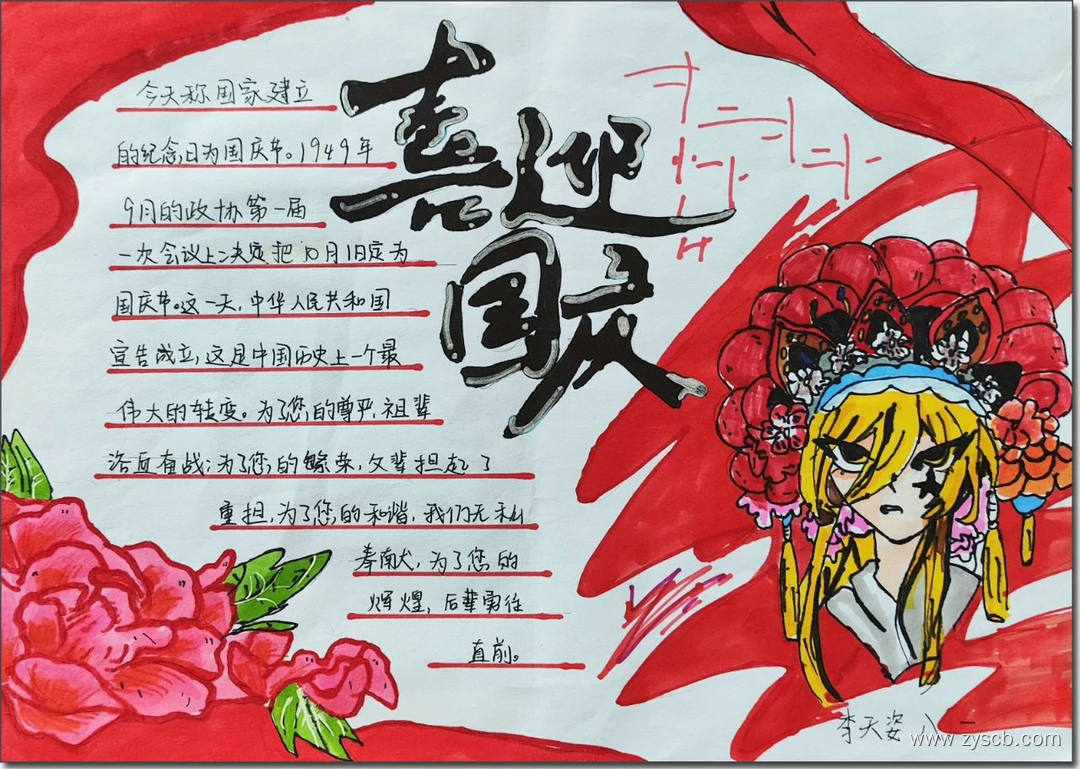 喜迎
国庆
今天称国家建立
的纪念日为国庆节。1949年
9月的政协第一届
一次会议上决定把10月1日定为
国庆节。这一天,中华人民共和国
宣告成立,这是中国历史上一个最
伟大的转变。为了您的尊严,祖辈
浴血奋战;为了您的繁荣,父辈担起了
重担,为了您的和谐,我们无私
奉献,为了您的
辉煌,后辈勇往
直前。
李天姿 八一
www.zyscb.com